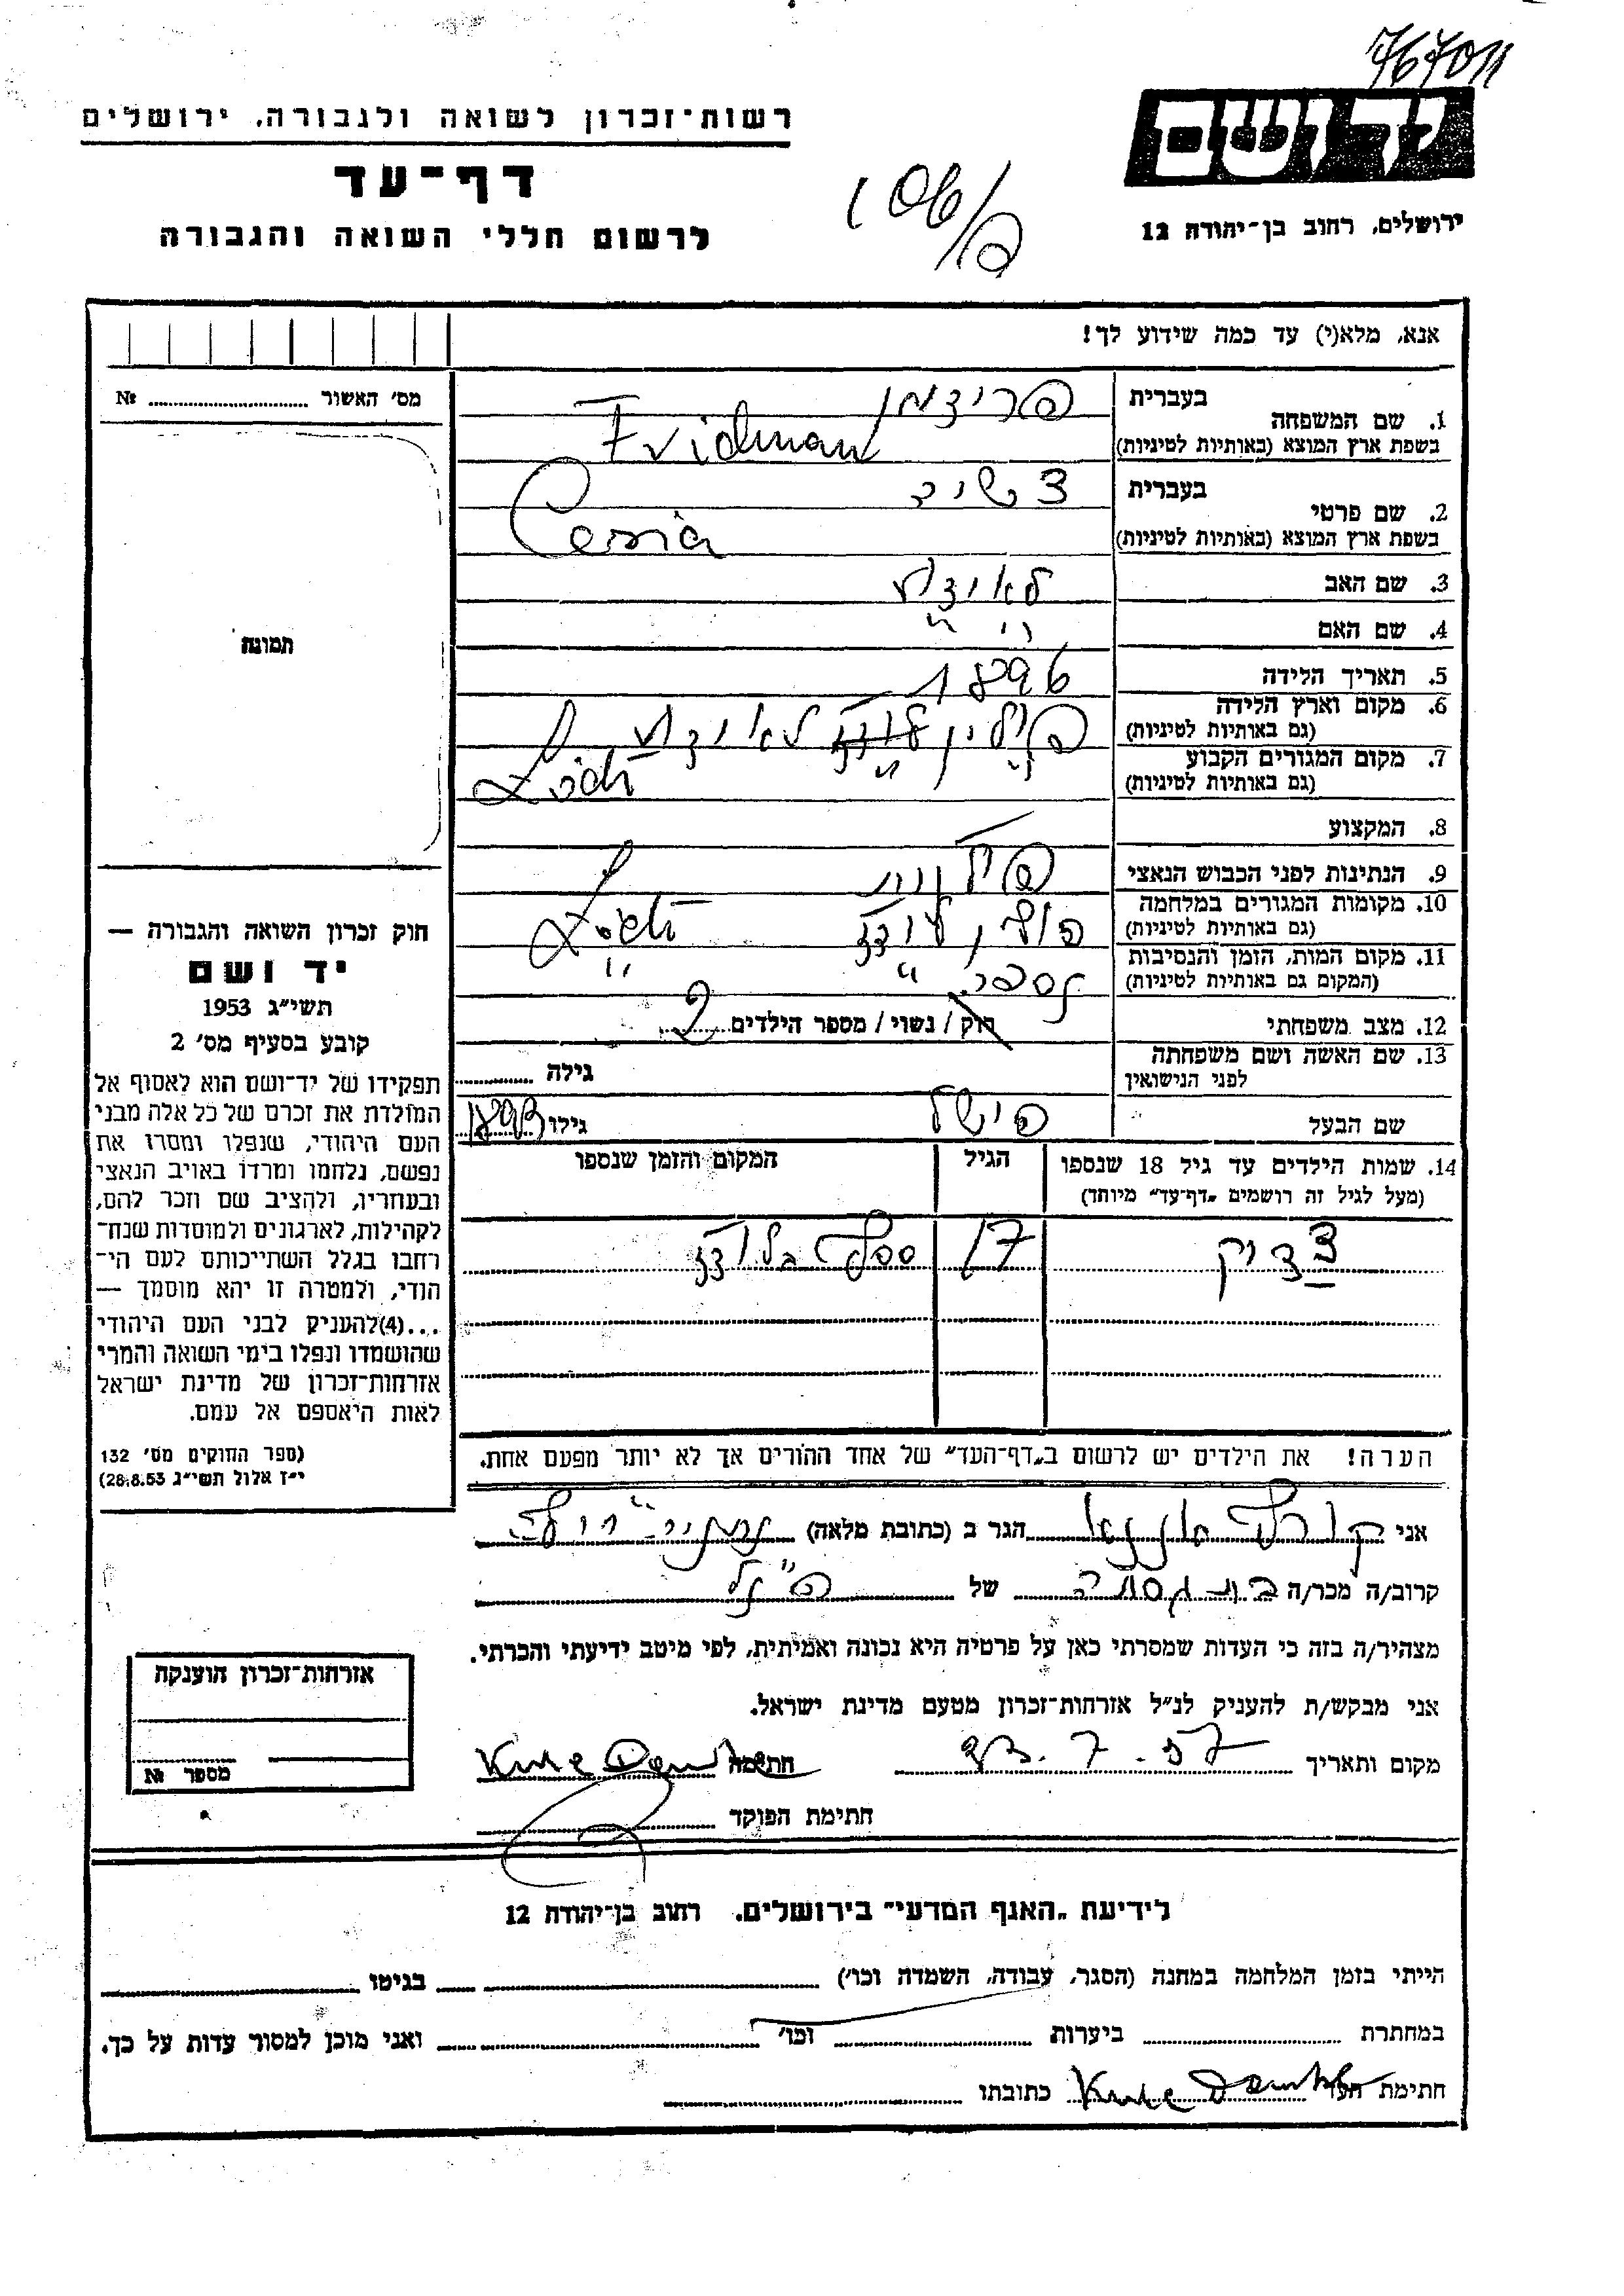 767011
יד ושם
ירושלים, רחוב בן-יהודה 12
רשות-זכרון לשואה ולגבורה, ירושלים
דף-עד
לרשום חללי השואה והגבורה
106/
אנא, מלא(י) עד כמה שידוע לך!
1. שם המשפחה
בעברית פרידמן
בשפת ארץ המוצא (באותיות לטיניות) Fridman
2. שם פרטי
בעברית
בשפת ארץ המוצא (באותיות לטיניות) Cesia
3. שם האב
4. שם האם
5. תאריך הלידה 1896
6. מקום וארץ הלידה
(גם באותיות לטיניות) פולין
7. מקום המגורים הקבוע
(גם באותיות לטיניות) Lódź
8. המקצוע
9. הנתינות לפני הכבוש הנאצי
10. מקומות המגורים במלחמה
(גם באותיות לטיניות) פולין לודז Lódź
11. מקום המות, הזמן והנסיבות
(המקום גם באותיות לטיניות)
12. מצב משפחתי רוק / נשוי / מספר הילדים 2
13. שם האשה ושם משפחתה
לפני הנישואין
גילה
שם הבעל פישל גילו 1893
14. שמות הילדים עד גיל 18 שנספו
(מעל לגיל זה רושמים "דף-עד" מיוחד)
הגיל
המקום והזמן שנספו
צדיק 17 בלודז
הערה! את הילדים יש לרשום ב"דף-העד" של אחד ההורים אך לא יותר מפעם אחת.
אני הגר ב (כתובת מלאה)
קרוב/ה מכר/ה של
מצהיר/ה בזה כי העדות שמסרתי כאן על פרטיה היא נכונה ואמיתית, לפי מיטב ידיעתי והכרתי.
אני מבקש/ת להעניק לנ"ל אזרחות-זכרון מטעם מדינת ישראל.
מקום ותאריך 23.7.57 חתימה
חתימת הפוקד
מס' האשור №
תמונה
חוק זכרון השואה והגבורה —
יד ושם
תשי"ג 1953
קובע בסעיף מס' 2
תפקידו של יד-ושם הוא לאסוף אל
המולדת את זכרם של כל אלה מבני
העם היהודי, שנפלו ומסרו את
נפשם, נלחמו ומרדו באויב הנאצי
ובעוזריו, ולהציב שם וזכר להם,
לקהילות, לארגונים ולמוסדות שנח-
רחבו בגלל השתייכותם לעם הי-
הודי, ולמטרה זו יהא מוסמך —
...(4) להעניק לבני העם היהודי
שהושמדו ונפלו בימי השואה והמרי
אזרחות-זכרון של מדינת ישראל
לאות היאספם אל עמם.
(ספר החוקים מס' 132
י"ז אלול תשי"ג 28.8.53)
אזרחות-זכרון הוענקה
מספר №
לידיעת "האגף המדעי" בירושלים, רחוב בן-יהודה 12
הייתי בזמן המלחמה במחנה (הסגר, עבודה, השמדה וכו') בגיטו
במחתרת ביערות וכו' ואני מוכן למסור עדות על כך.
חתימת העד כתובתו